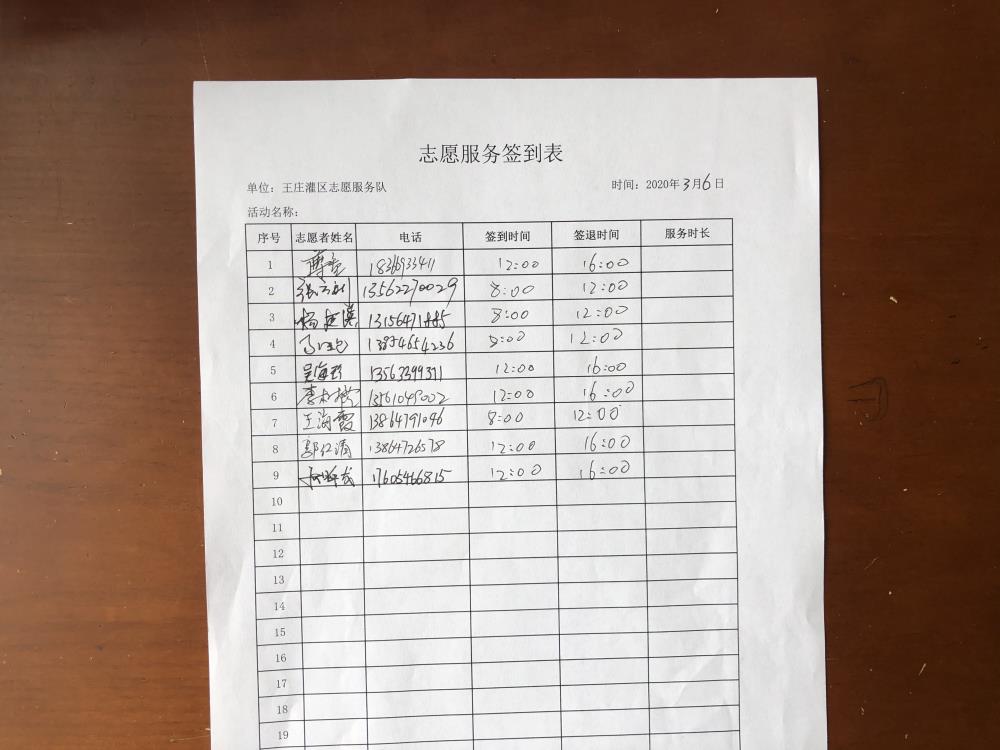 志愿服务签到表
单位：王庄灌区志愿服务队 时间：2020年3月6日
活动名称：
序号 志愿者姓名 电话 签到时间 签退时间 服务时长
1 12:00 16:00
2 13562270029 8:00 12:00
3 13156471885 8:00 12:00
4 13854654236 8:00 12:00
5 吴海珍 13563399311 12:00 16:00
6 李 13561049002 12:00 16:00
7 王海霞 13864791046 8:00 12:00
8 郭仁清 13864726578 12:00 16:00
9 17605466815 12:00 16:00
10
11
12
13
14
15
16
17
18
19